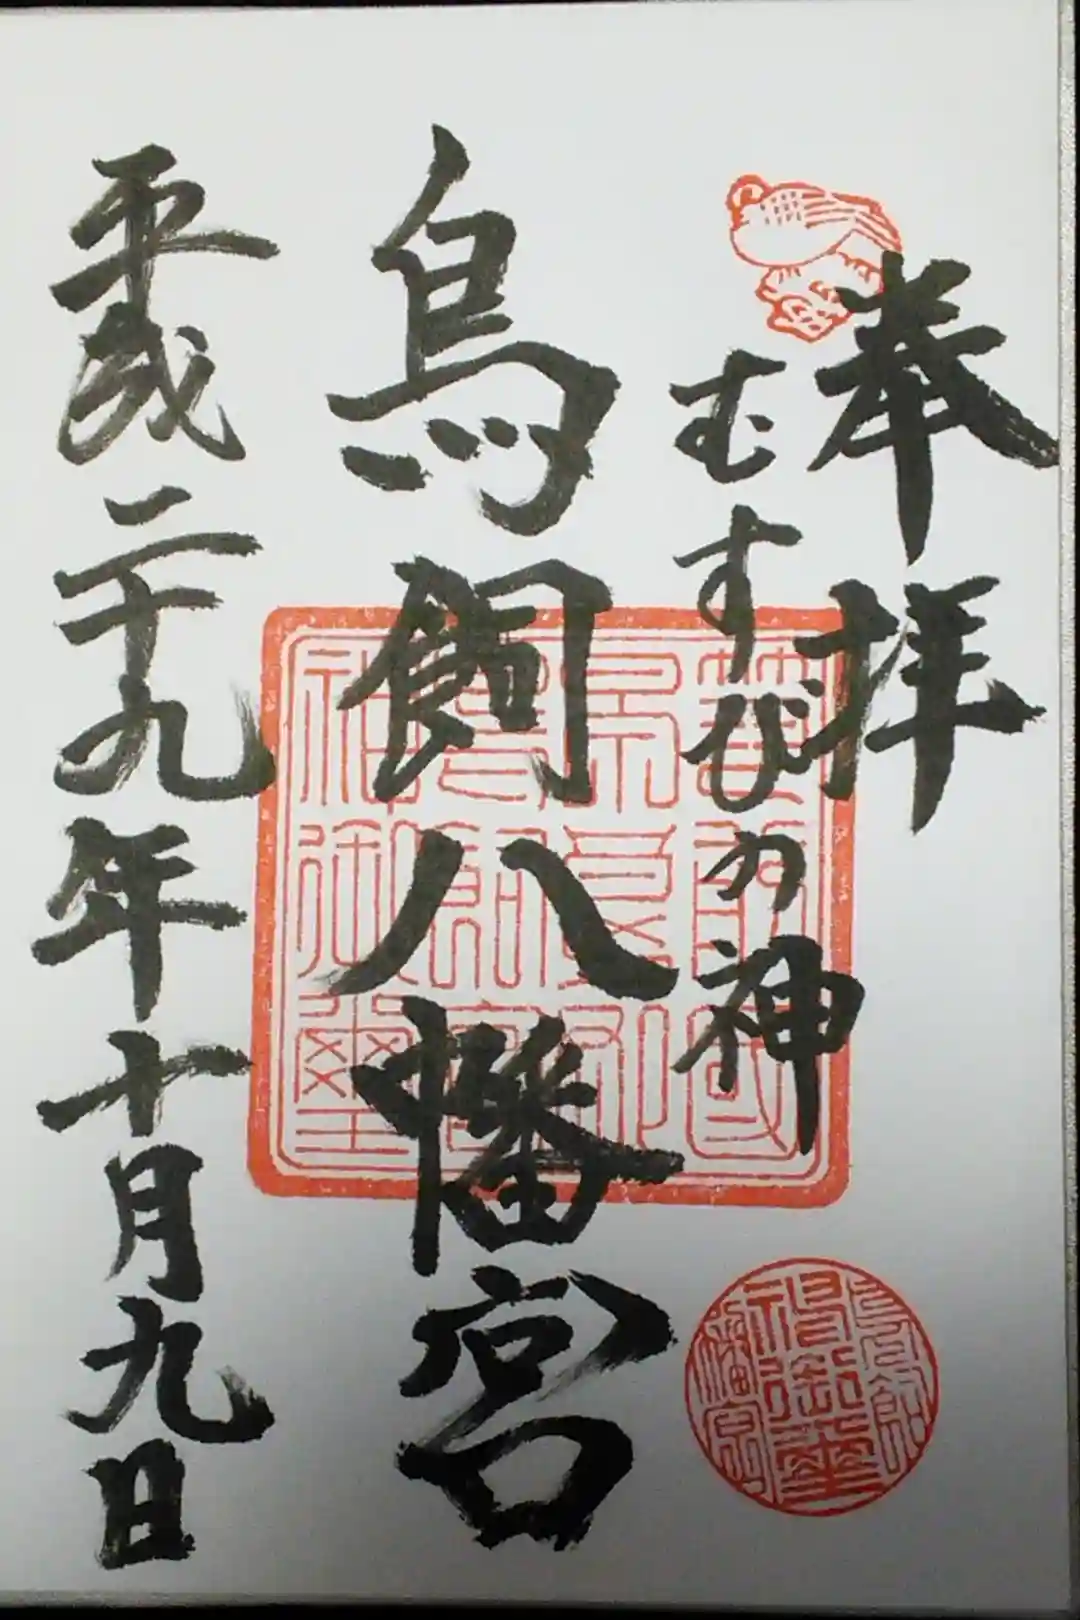 奉拝
むすびの神
鳥飼八幡宮
平成二十九年十月九日